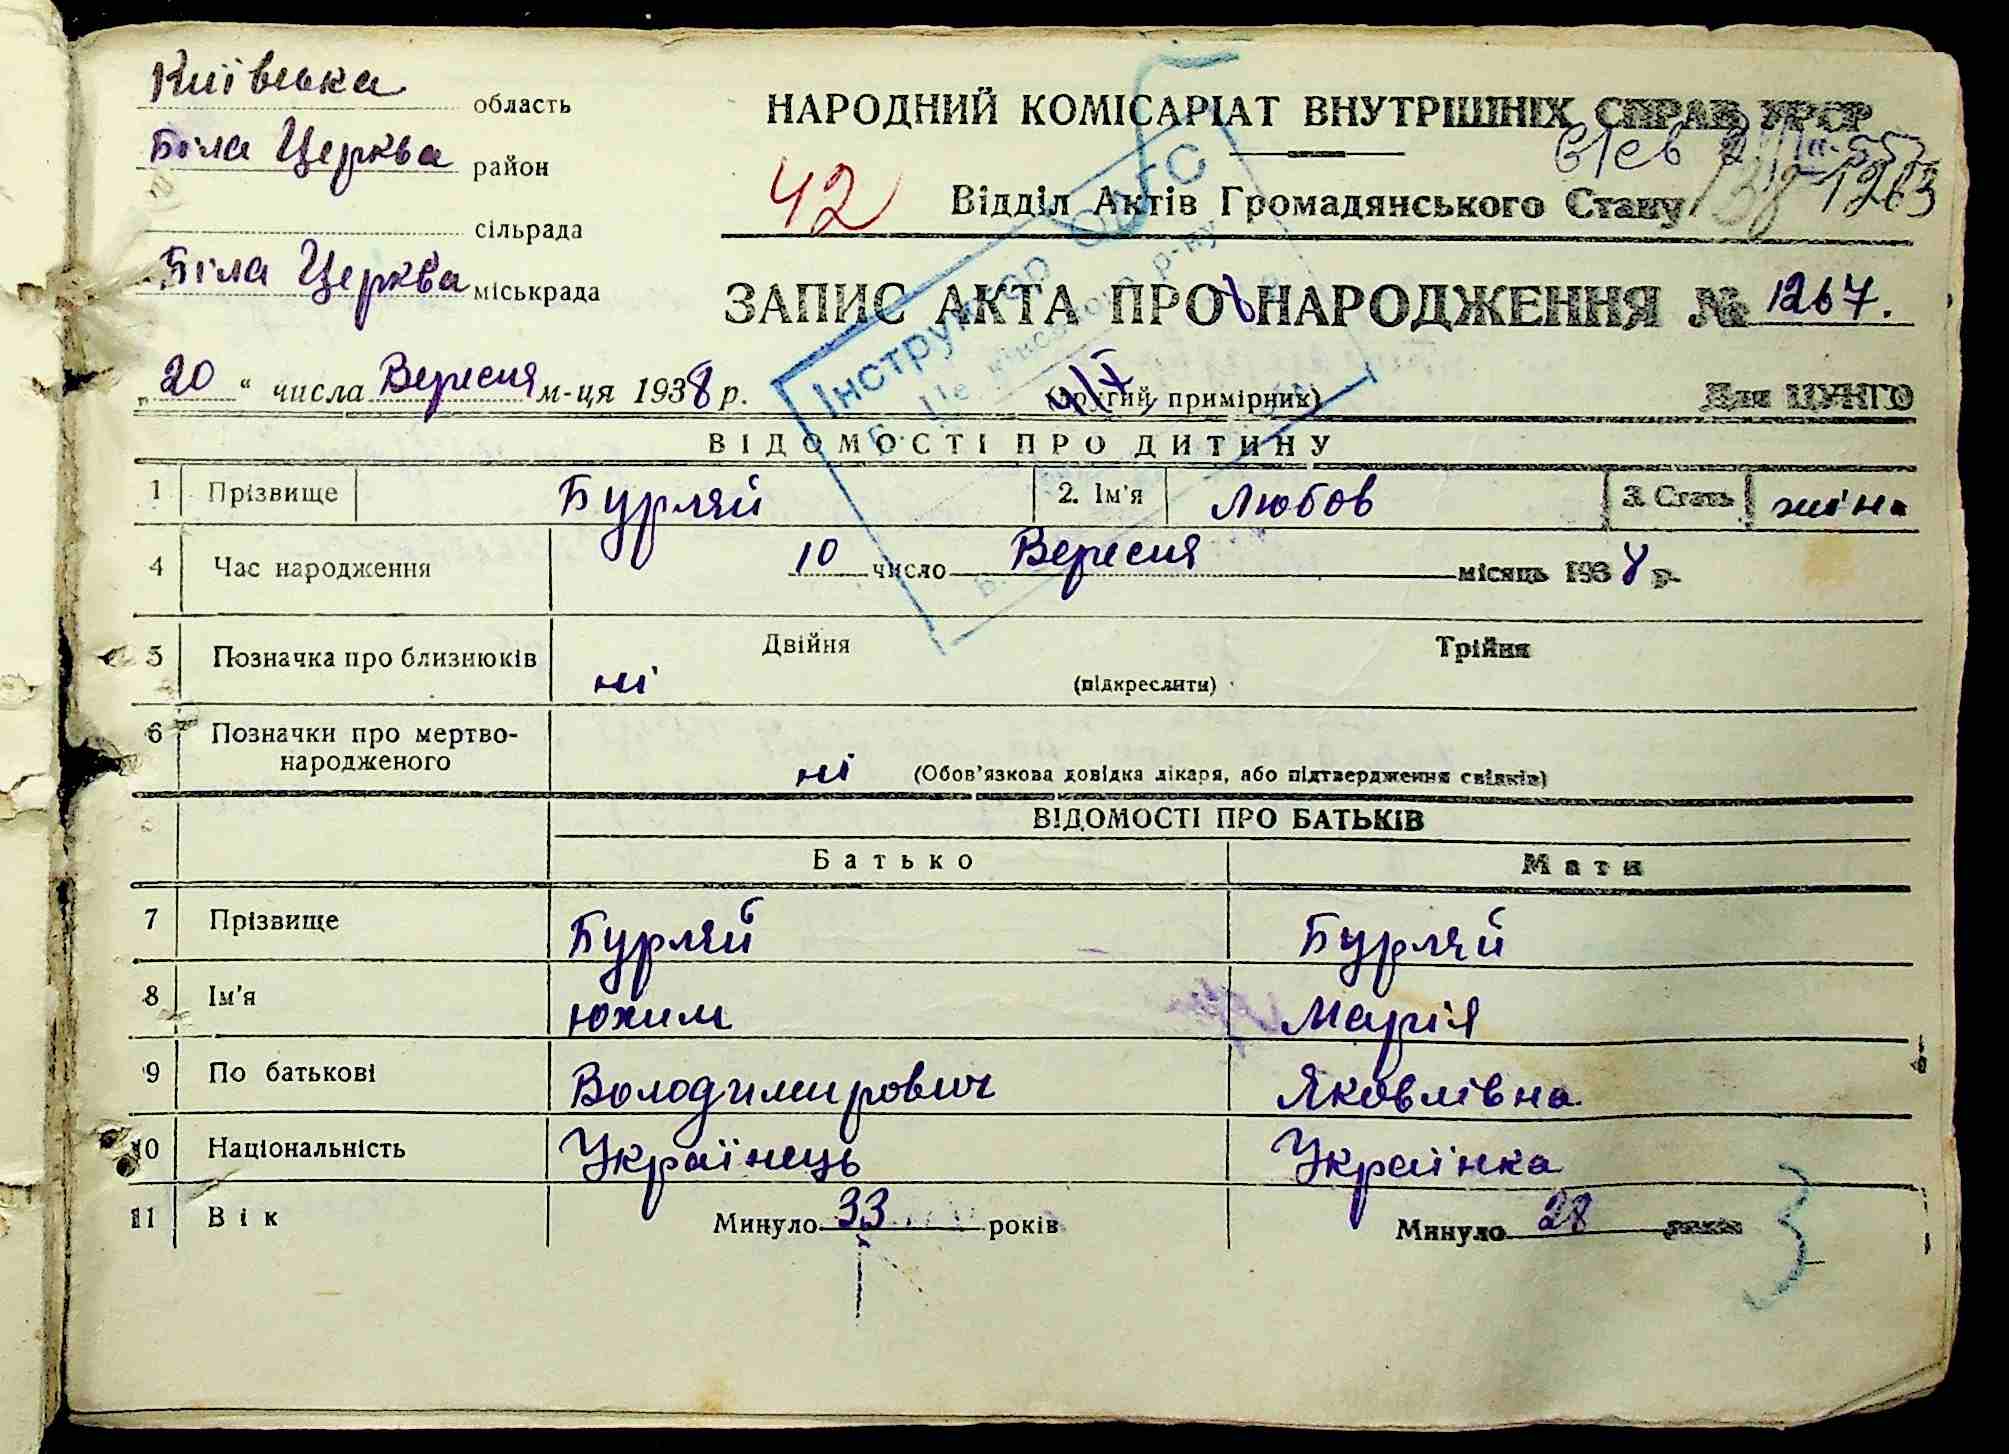 Київська область
Біла Церква район
сільрада
Біла Церква міськрада
НАРОДНИЙ КОМІСАРІАТ ВНУТРІШНІХ СПРАВ УРСР
42
Відділ Актів Громадянського Стану
ЗАПИС АКТА ПРО НАРОДЖЕННЯ № 1267.
„ 20 “ числа Вересня м-ця 1938 р.
(другий примірник)
Для ЦУНГО
Інструктор ОАГС
р-ну
ВІДОМОСТІ ПРО ДИТИНУ
1 Прізвище Бурляй 2. Ім'я Любов 3. Стать жіна
4 Час народження 10 число Вересня місяць 1938 р.
5 Позначка про близнюків ні Двійня Трійня
(підкреслити)
6 Позначки про мертво-
народженого ні (Обов'язкова довідка лікаря, або підтвердження свідків)
ВІДОМОСТІ ПРО БАТЬКІВ
Батько Мати
7 Прізвище Бурляй Бурляй
8 Ім'я Юхим Марія
9 По батькові Володимирович Яковлівна
10 Національність Українець Українка
11 Вік Минуло 33 років Минуло 28 років